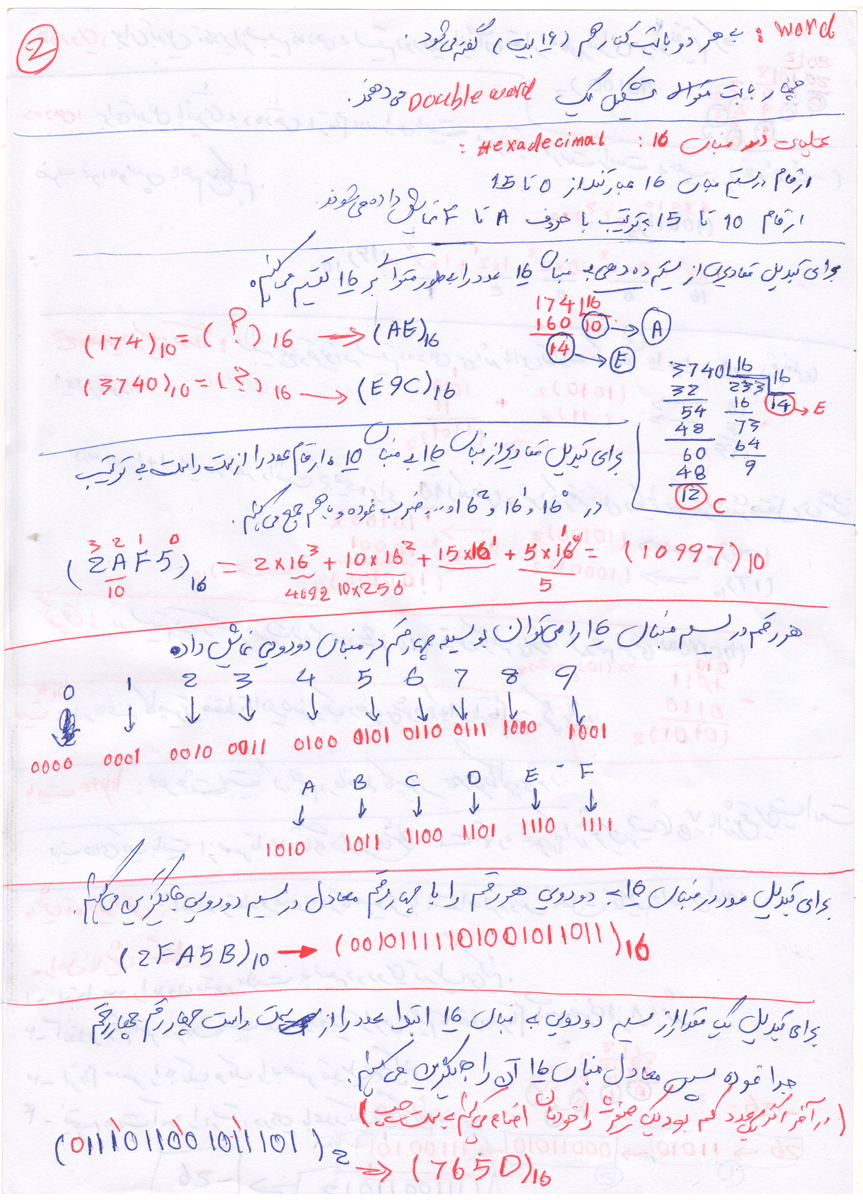 2
word : به هر دو بایت کنار هم (16 بیت) گفته می‌شود.
چهار بایت متوالی تشکیل یک Double word می‌دهند.
عملیات در مبنای 16 : Hexadecimal :
ارقام در سیستم مبنای 16 عبارتند از 0 تا 15
ارقام 10 تا 15 بترتیب با حروف A تا F نمایش داده می‌شوند.
برای تبدیل مقادیری از سیستم ده دهی به مبنای 16 عدد را به طور متوالی بر 16 تقسیم می‌کنیم.
(174)10 = (?)16 → (AE)16
174 16
160 10 → A
14 → E
(3740)10 = (?)16 → (E9C)16
3740 16
32 233 16
54 16 14 → E
48 73
60 64
48 9
12 C
برای تبدیل مقادیر از مبنای 16 به مبنای 10، ارقام عدد را از سمت راست به ترتیب
در 16⁰ و 16¹ و 16² و ... ضرب نموده و با هم جمع می‌کنیم.
3 2 1 0
(2AF5)16 = 2×16³ + 10×16² + 15×16¹ + 5×16⁰ = (10997)10
10 4092 10×256 5
هر رقم در سیستم مبنای 16 را می‌توان بوسیله چهار رقم در مبنای دودویی نمایش داد
0 1 2 3 4 5 6 7 8 9
0000 0001 0010 0011 0100 0101 0110 0111 1000 1001
A B C D E F
1010 1011 1100 1101 1110 1111
برای تبدیل عدد در مبنای 16 به دودویی هر رقم را با چهار رقم معادل در سیستم دودویی جایگزین می‌کنیم.
(2FA5B)10 → (00101111101001011011)16
برای تبدیل یک مقدار از سیستم دودویی به مبنای 16 ابتدا عدد را از سمت راست چهار رقم چهار رقم
جدا نموده سپس معادل مبنای 16 آن را جایگزین می‌کنیم.
(در آخر اگر عدد کم بود یک صفر را خودمان اضافه می‌کنیم به سمت چپ)
(0111011001011101)2
→ (765D)16